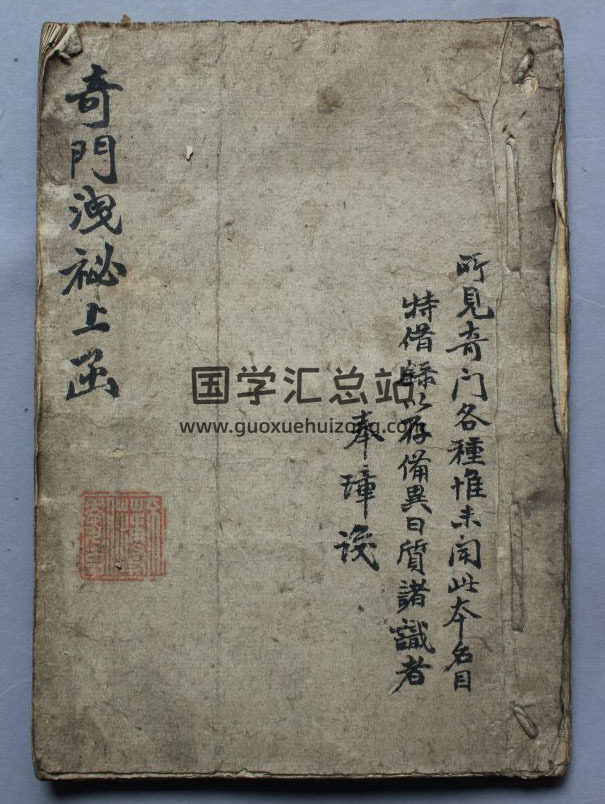 所見奇门各種惟未聞此本名目
特借録以存備異日質諸識者
奉璋誌
奇門洩祕上函
国学汇总站
www.guoxuehuizong.com